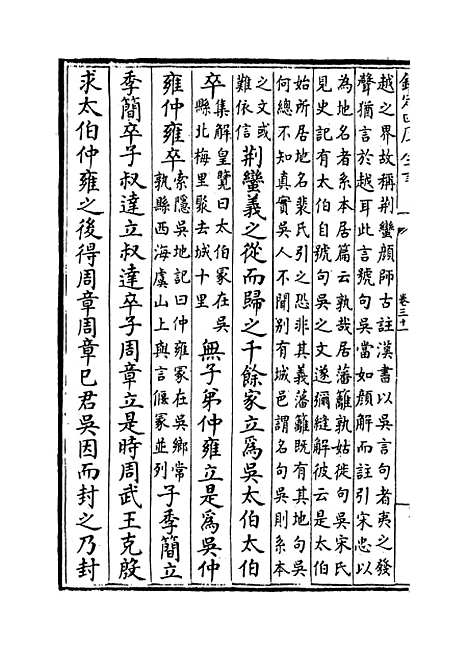 卷三十一
越之界故稱荆蠻顔師古註漢書以吳言句者夷之發
聲猶言於越耳此言號句吳當如顔解而註引宋忠以
為地名者系本居篇云孰哉居藩籬孰姑徙句吳宋氏
見史記有太伯自號句吳之文遂彌縫解彼云是太伯
始所居地名裴氏引之恐非其義藩籬既有其地句吳
何總不知真實吳人不聞別有城邑謂名句吳則系本
之文或
難依信
荆蠻義之從而歸之千餘家立爲吳太伯太伯
卒
集解皇覽曰太伯冢在吳
縣北梅里聚去城十里
無子弟仲雍立是爲吳仲
雍仲雍卒
索隱吳地記曰仲雍冢在吳鄉常
孰縣西海虞山上與言偃冢並列
子季簡立
季簡卒子叔達立叔達卒子周章立是時周武王克殷
求太伯仲雍之後得周章周章已君吳因而封之乃封